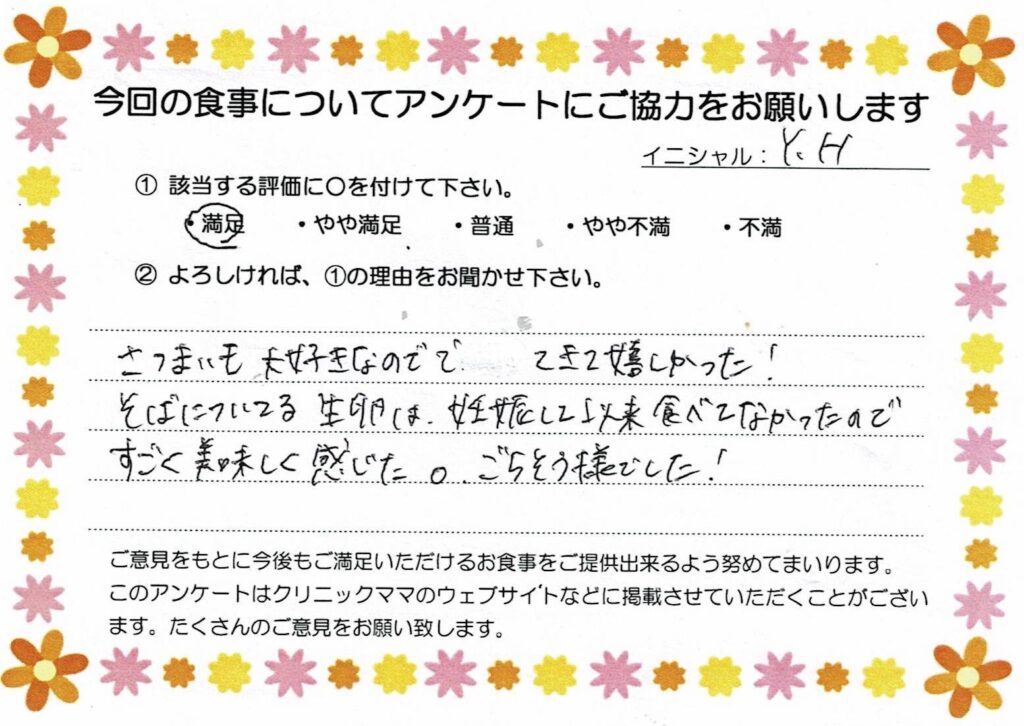 今回の食事についてアンケートにご協力をお願いします
イニシャル：Y.H
① 該当する評価に〇を付けて下さい。
・満足 ・やや満足 ・普通 ・やや不満 ・不満
② よろしければ、①の理由をお聞かせ下さい。
さつまいも 大好きなのでで てきて嬉しかった！
そばについてる 生卵は、妊娠して以来 食べてなかったので
すごく美味しく感じた。ごちそう様でした！
ご意見をもとに今後もご満足いただけるお食事をご提供出来るよう努めてまいります。
このアンケートはクリニックママのウェブサイトなどに掲載させていただくことがござい
ます。たくさんのご意見をお願い致します。